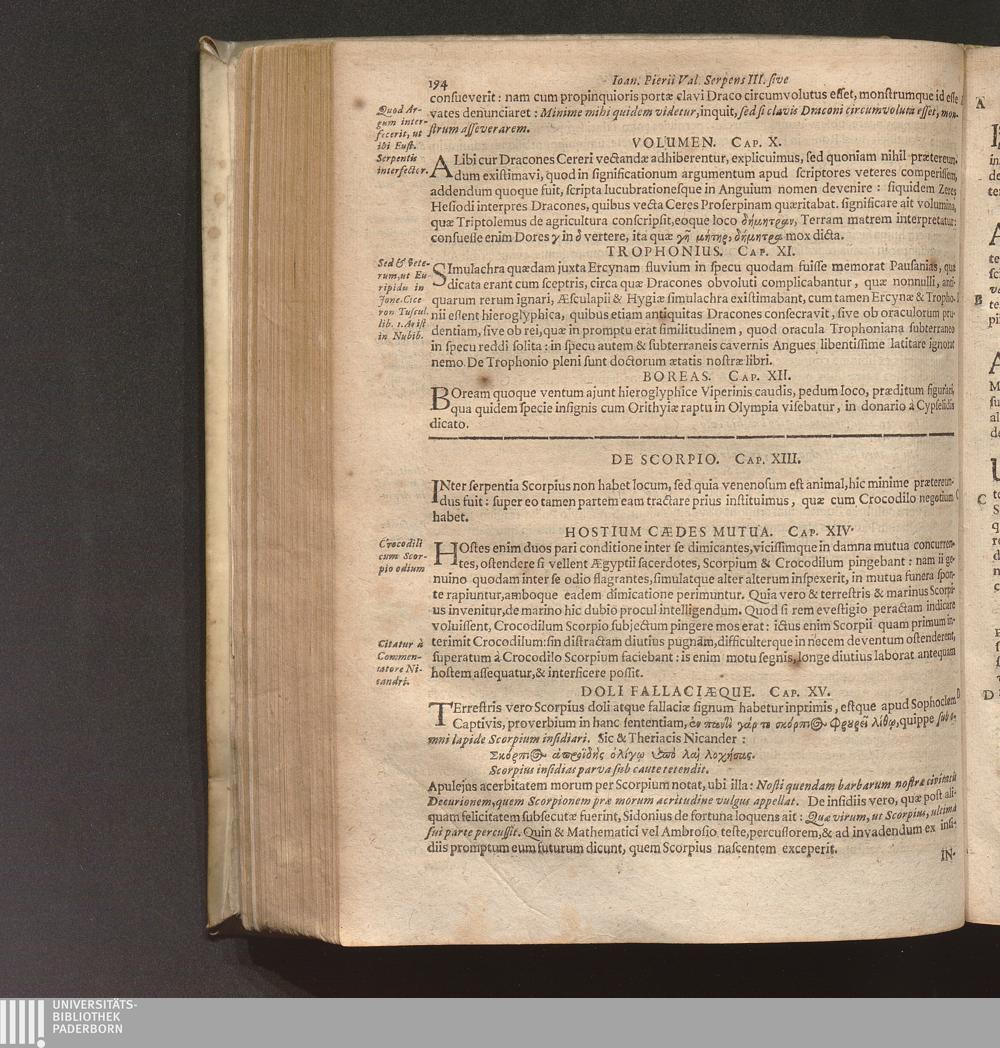 194
Ioan. Pierii Val. Serpens III. sive
consueverit: nam cum propinquioris portæ clavi Draco circumvolutus esset, monstrumque id esse
vates denunciaret: Minime mihi quidem videtur, inquit, sed si clavis Draconi circumvoluta esset, mon-
strum asseverarem.
Quod Ar-
gum inter-
fecerit, ut
ibi Eust.
Serpentis
interfector.
VOLUMEN. CAP. X.
ALibi cur Dracones Cereri vectandæ adhiberentur, explicuimus, sed quoniam nihil prætereun-
dum existimavi, quod in significationum argumentum apud scriptores veteres comperissem,
addendum quoque fuit, scripta lucubrationesque in Anguium nomen devenire: siquidem Zezes
Hesiodi interpres Dracones, quibus vecta Ceres Proserpinam quæritabat. significare ait volumina,
quæ Triptolemus de agricultura conscripsit, eoque loco δήμητραν, Terram matrem interpretatur:
consuesse enim Dores γ in δ vertere, ita quæ γῆ μήτηρ, δήμητρα mox dicta.
TROPHONIUS. CAP. XI.
Sed & Vete-
rum, ut Eu-
ripidis in
Jone. Cice
ron Tuscul.
lib. 1. Arist
in Nubib.
SImulachra quædam juxta Ercynam fluvium in specu quodam fuisse memorat Pausanias, quæ
dicata erant cum sceptris, circa quæ Dracones obvoluti complicabantur, quæ nonnulli, anti-
quarum rerum ignari, Æsculapii & Hygiæ simulachra existimabant, cum tamen Ercynæ & Tropho-
nii essent hieroglyphica, quibus etiam antiquitas Dracones consecravit, sive ob oraculorum pru-
dentiam, sive ob rei, quæ in promptu erat similitudinem, quod oracula Trophoniana subterraneo
in specu reddi solita: in specu autem & subterraneis cavernis Angues libentissime latitare ignorat
nemo. De Trophonio pleni sunt doctorum ætatis nostræ libri.
BOREAS. CAP. XII.
BOream quoque ventum ajunt hieroglyphice Viperinis caudis, pedum loco, præditum figurari,
qua quidem specie insignis cum Orithyiæ raptu in Olympia visebatur, in donario à Cypselidis
dicato.
DE SCORPIO. CAP. XIII.
INter serpentia Scorpius non habet locum, sed quia venenosum est animal, hic minime prætereun-
dus fuit: super eo tamen partem eam tractare prius instituimus, quæ cum Crocodilo negotium C
habet.
HOSTIUM CÆDES MUTUA. CAP. XIV.
Crocodili
cum Scor-
pio odium
HOstes enim duos pari conditione inter se dimicantes, vicissimque in damna mutua concurren-
tes, ostendere si vellent Ægyptii sacerdotes, Scorpium & Crocodilum pingebant: nam ii ge-
nuino quodam inter se odio flagrantes, simulatque alter alterum inspexerit, in mutua funera spon-
te rapiuntur, amboque eadem dimicatione perimuntur. Quia vero & terrestris & marinus Scorpi-
us invenitur, de marino hic dubio procul intelligendum. Quod si rem evestigio peractam indicare
voluissent, Crocodilum Scorpio subjectum pingere mos erat: ictus enim Scorpii quam primum in-
terimit Crocodilum: sin distractam diutius pugnam, difficulterque in necem deventum ostenderent,
superatum à Crocodilo Scorpium faciebant: is enim motu segnis, longe diutius laborat antequam
hostem assequatur, & interficere possit.
Citatur à
Commen-
tatore Ni-
candri.
DOLI FALLACIÆQUE. CAP. XV.
TErrestris vero Scorpius doli atque fallaciæ signum habetur inprimis, estque apud Sophoclem D
Captivis, proverbium in hanc sententiam, ἐν παντὶ γάρ τοι σκόρπιος φρουρεῖ λίθῳ, quippe sub o-
mni lapide Scorpium insidiari. Sic & Theriacis Nicander:
Σκόρπιος ἀπροϊδὴς ὀλίγῳ ὑπὸ λᾶϊ λοχήσας.
Scorpius insidias parva sub caute tetendit.
Apulejus acerbitatem morum per Scorpium notat, ubi illa: Nosti quendam barbarum nostræ civitatis
Decurionem, quem Scorpionem præ morum acritudine vulgus appellat. De insidiis vero, quæ post ali-
quam felicitatem subsecutæ fuerint, Sidonius de fortuna loquens ait: Quæ virum, ut Scorpius, ultima
sui parte percussit. Quin & Mathematici vel Ambrosio teste, percussorem, & ad invadendum ex insi-
diis promptum eum futurum dicunt, quem Scorpius nascentem exceperit.
IN-
A
B
C
D
UNIVERSITÄTS-
BIBLIOTHEK
PADERBORN